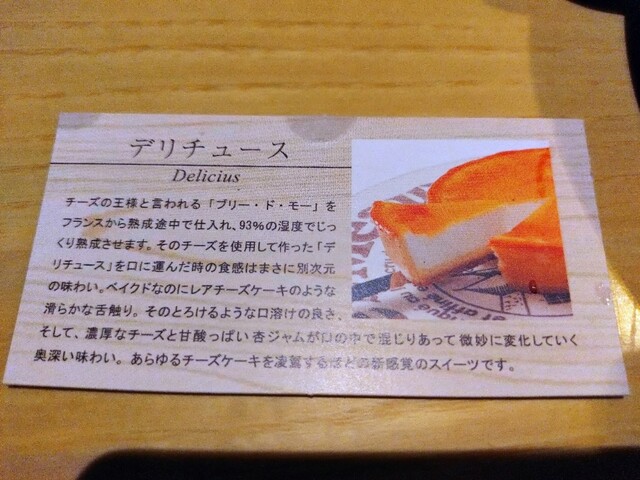 デリチュース
Delicius
チーズの王様と言われる「ブリー・ド・モー」を
フランスから熟成途中で仕入れ、93%の湿度でじっ
くり熟成させます。そのチーズを使用して作った「デ
リチュース」を口に運んだ時の食感はまさに別次元
の味わい。ベイクドなのにレアチーズケーキのような
滑らかな舌触り。そのとろけるような口溶けの良さ、
そして、濃厚なチーズと甘酸っぱい杏ジャムが口の中で混じりあって微妙に変化していく
奥深い味わい。あらゆるチーズケーキを凌駕するほどの新感覚のスイーツです。